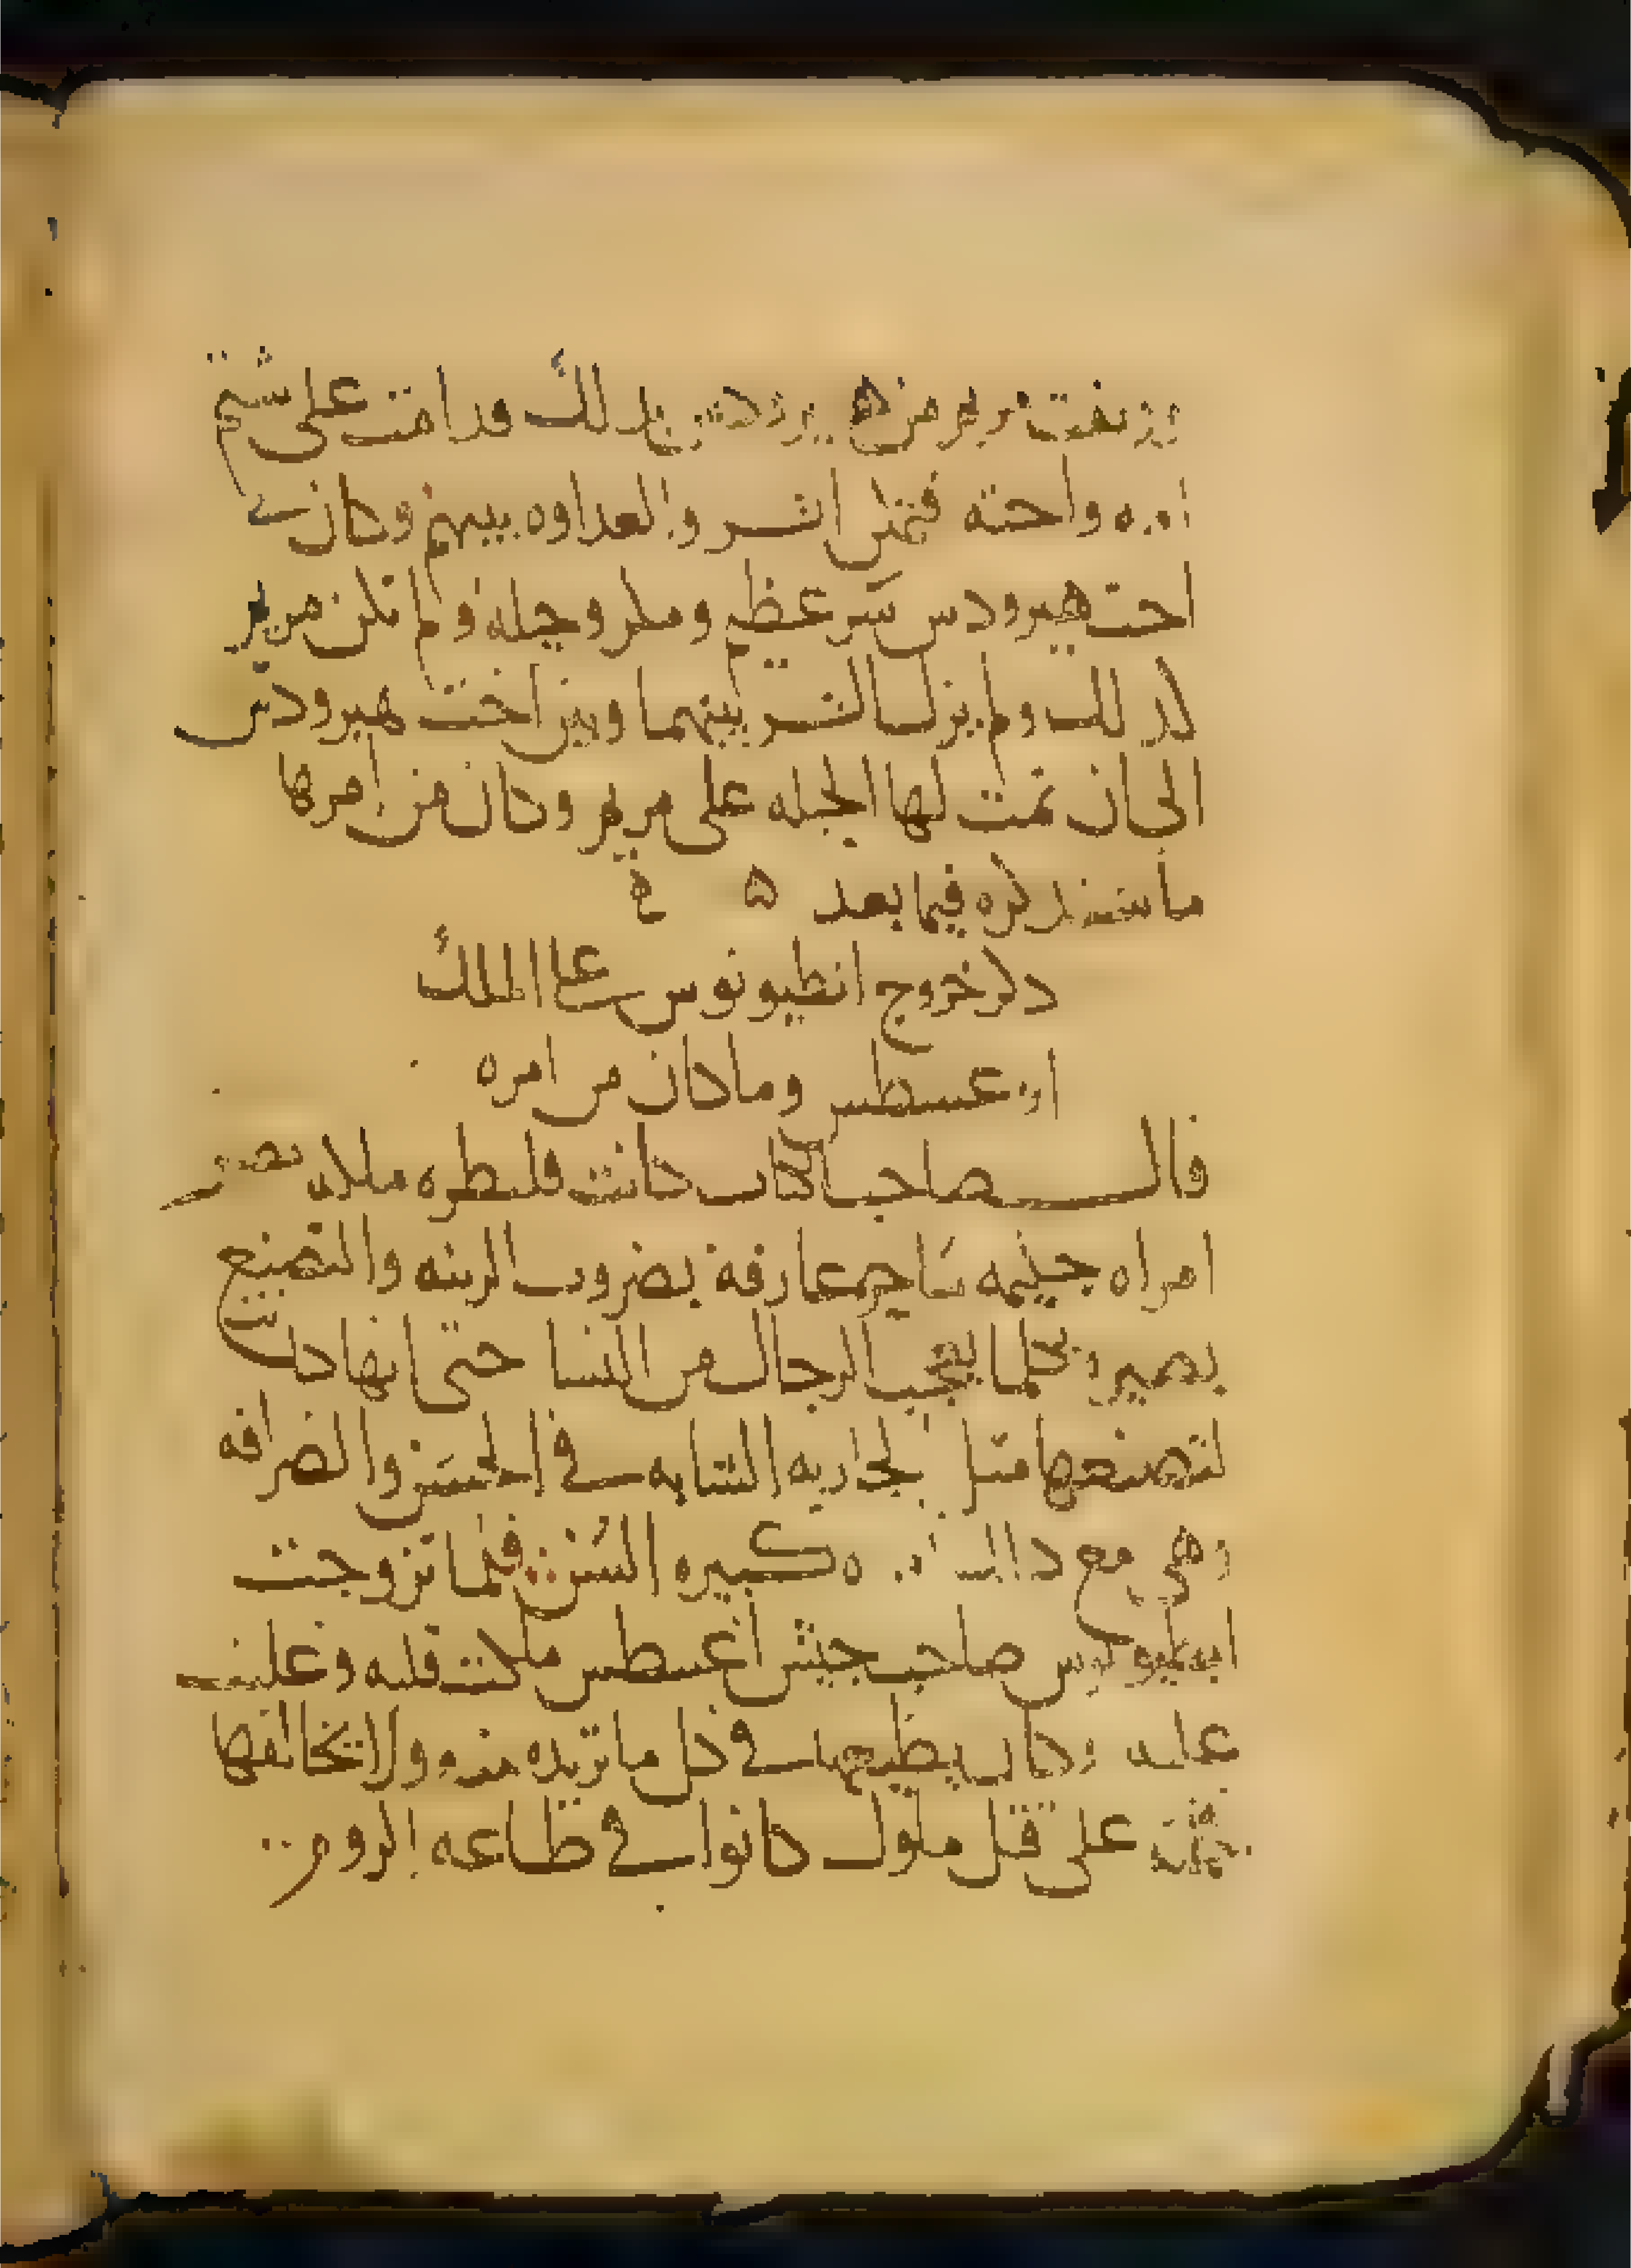 مريم من هيرودس بدلك فدامت على شتم
امه واخته فتمكن الشر والعداوه بينهم وكان في
اخت هيرودس شر عظيم ومكر وحيله ولم تكن مريم
كدلك ولم يزل الشر بينهما وبين اخت هيرودس
الى ان تمت لها الحيله على مريم وكان من امرها
ما سنذكره فيما بعد
دكر خروج انطيونوس على الملك
اوغسطس وما كان من امره
قال صاحب الكتاب كانت قلبطره ملكه مصر
امراه حكيمه ساحره عارفه بضروب الزينه والتصنيع
بصيره بكلما يعجب الرجال من النسا حتى انها كانت
لتصنعها مثل الجاريه الشابه في الحسن والضرافه
وهي مع دالك كبيره السن فلما تزوجت
انطيونوس صاحب جيش اغسطس ملكت قلبه وغلبت
عليه وكان يطيعها في كل ما تريده منه ولا يخالفها
فحملته على قتل ملوك كانوا في طاعه الروم